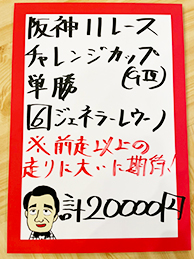 阪神11レース
チャレンジカップ
(GⅢ)
単勝
6 ジェネラーレウーノ
※前走以上の
走りに大いに期待!
計20000円